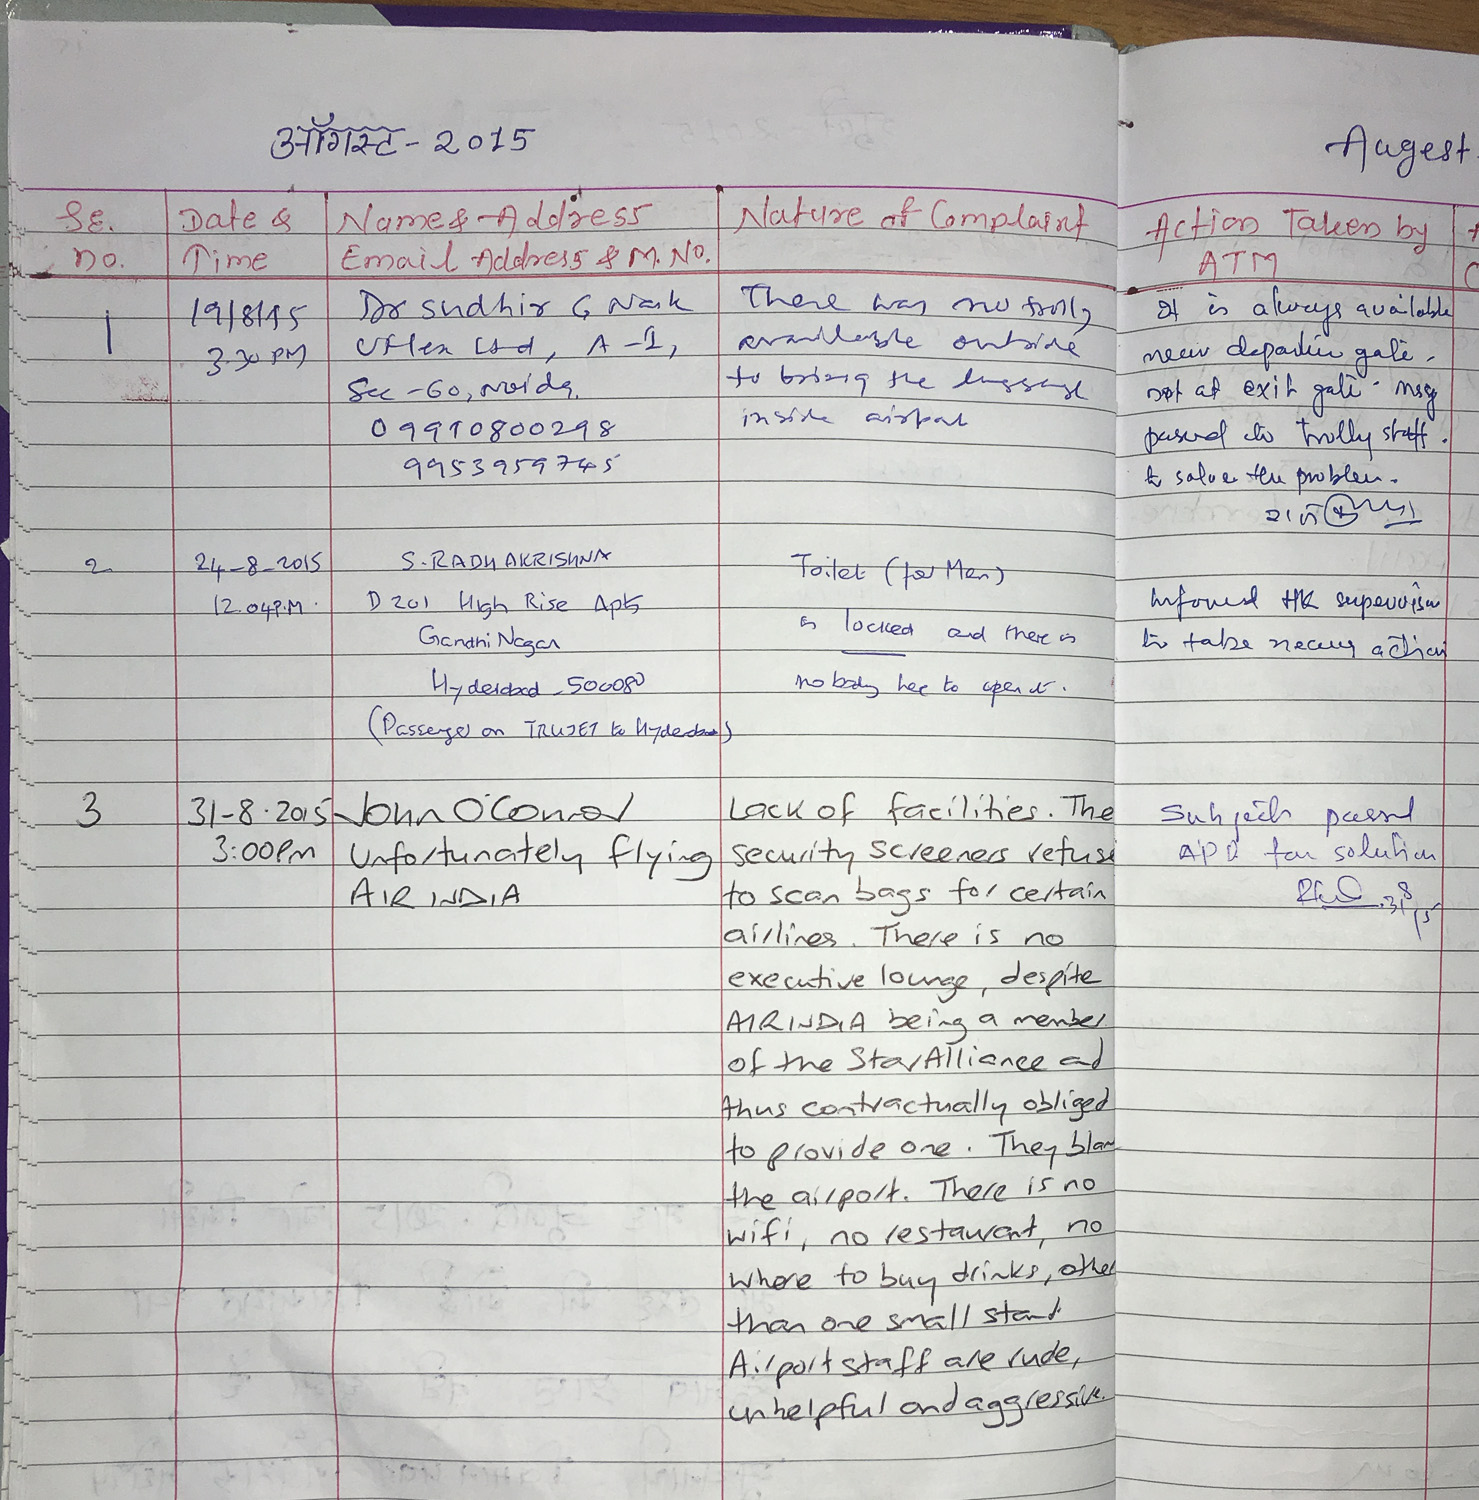 ऑगस्ट - 2015
Augest
Sr.
no.
Date &
Time
Name & Address
Email Address & M. No.
Nature of Complaint
Action Taken by
ATM
1
19/8/15
3.30 PM
Dr Sudhir G Naik
Uflex Ltd, A-1,
Sec-60, Noida.
09910800298
9953959745
There was no trolly
available outside
to bring the luggage
inside airport
It is always available
near departure gate.
not at exit gate. msg
passed to trolly staff.
to solve the problem.
2
24-8-2015
12.04P.M.
S. RADHAKRISHNA
D201 High Rise Apts
Gandhi Nagar
Hyderabad - 500080
(Passenger on TRUJET to Hyderabad)
Toilet (for Men)
is locked and there is
nobody here to open it.
Informed HK supervisor
to take necessary action
3
31-8-2015
3:00PM
John O'Connor
Unfortunately flying
AIR INDIA
Lack of facilities. The
security screeners refuse
to scan bags for certain
airlines. There is no
executive lounge, despite
AIR INDIA being a member
of the Star Alliance and
thus contractually obliged
to provide one. They blame
the airport. There is no
wifi, no restaurant, no
where to buy drinks, other
than one small stand.
Airport staff are rude,
unhelpful and aggressive.
Subject passed
APD for solution
31/8/15